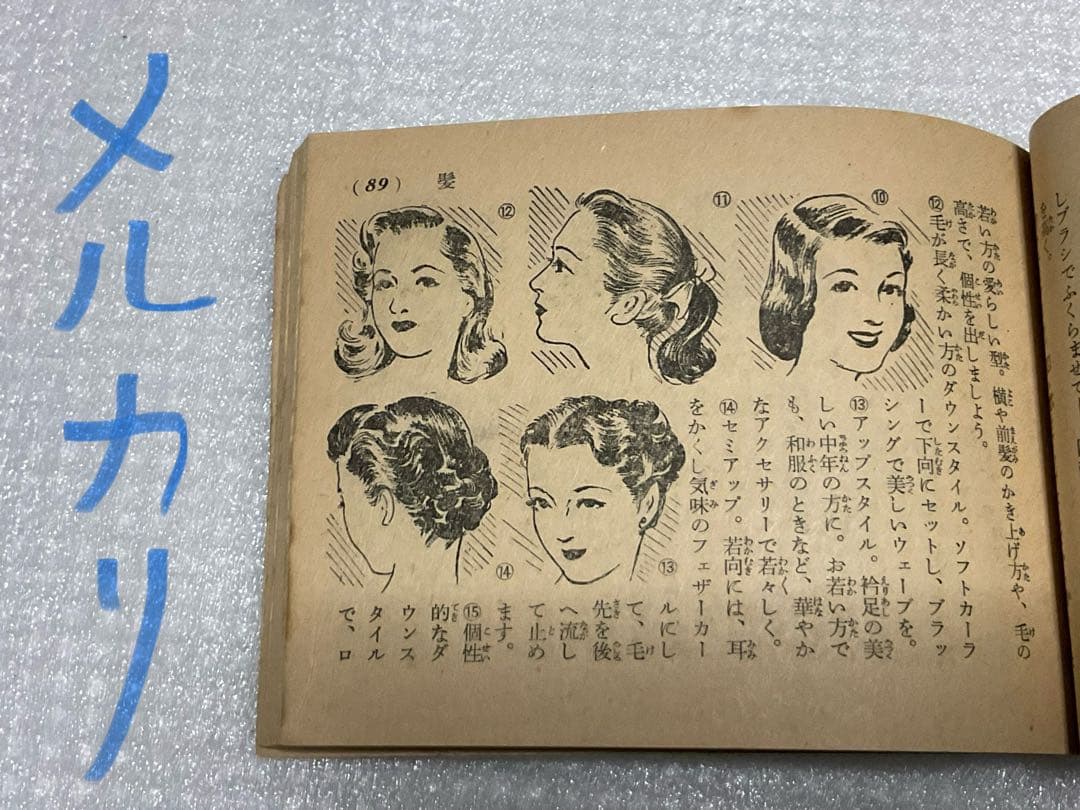 メルカリ
(89) 髪
⑩
⑪
⑫
⑬
⑭
若い方の愛らしい型。横や前髪のかき上げ方や、毛の
高さで、個性を出しましょう。
⑫毛が長く柔かい方のダウンスタイル。ソフトカーラ
ーで下向にセットし、ブラッ
シングで美しいウェーブを。
⑬アップスタイル。衿足の美
しい中年の方に。お若い方で
も、和服のときなど、華やか
なアクセサリーで若々しく。
⑭セミアップ。若向には、耳
をかくし気味のフェザーカー
ルにし
て、毛
先を後
へ流し
て止め
ます。
⑮個性
的なダ
ウンス
タイル
で、ロ
しブラシでふくらませて